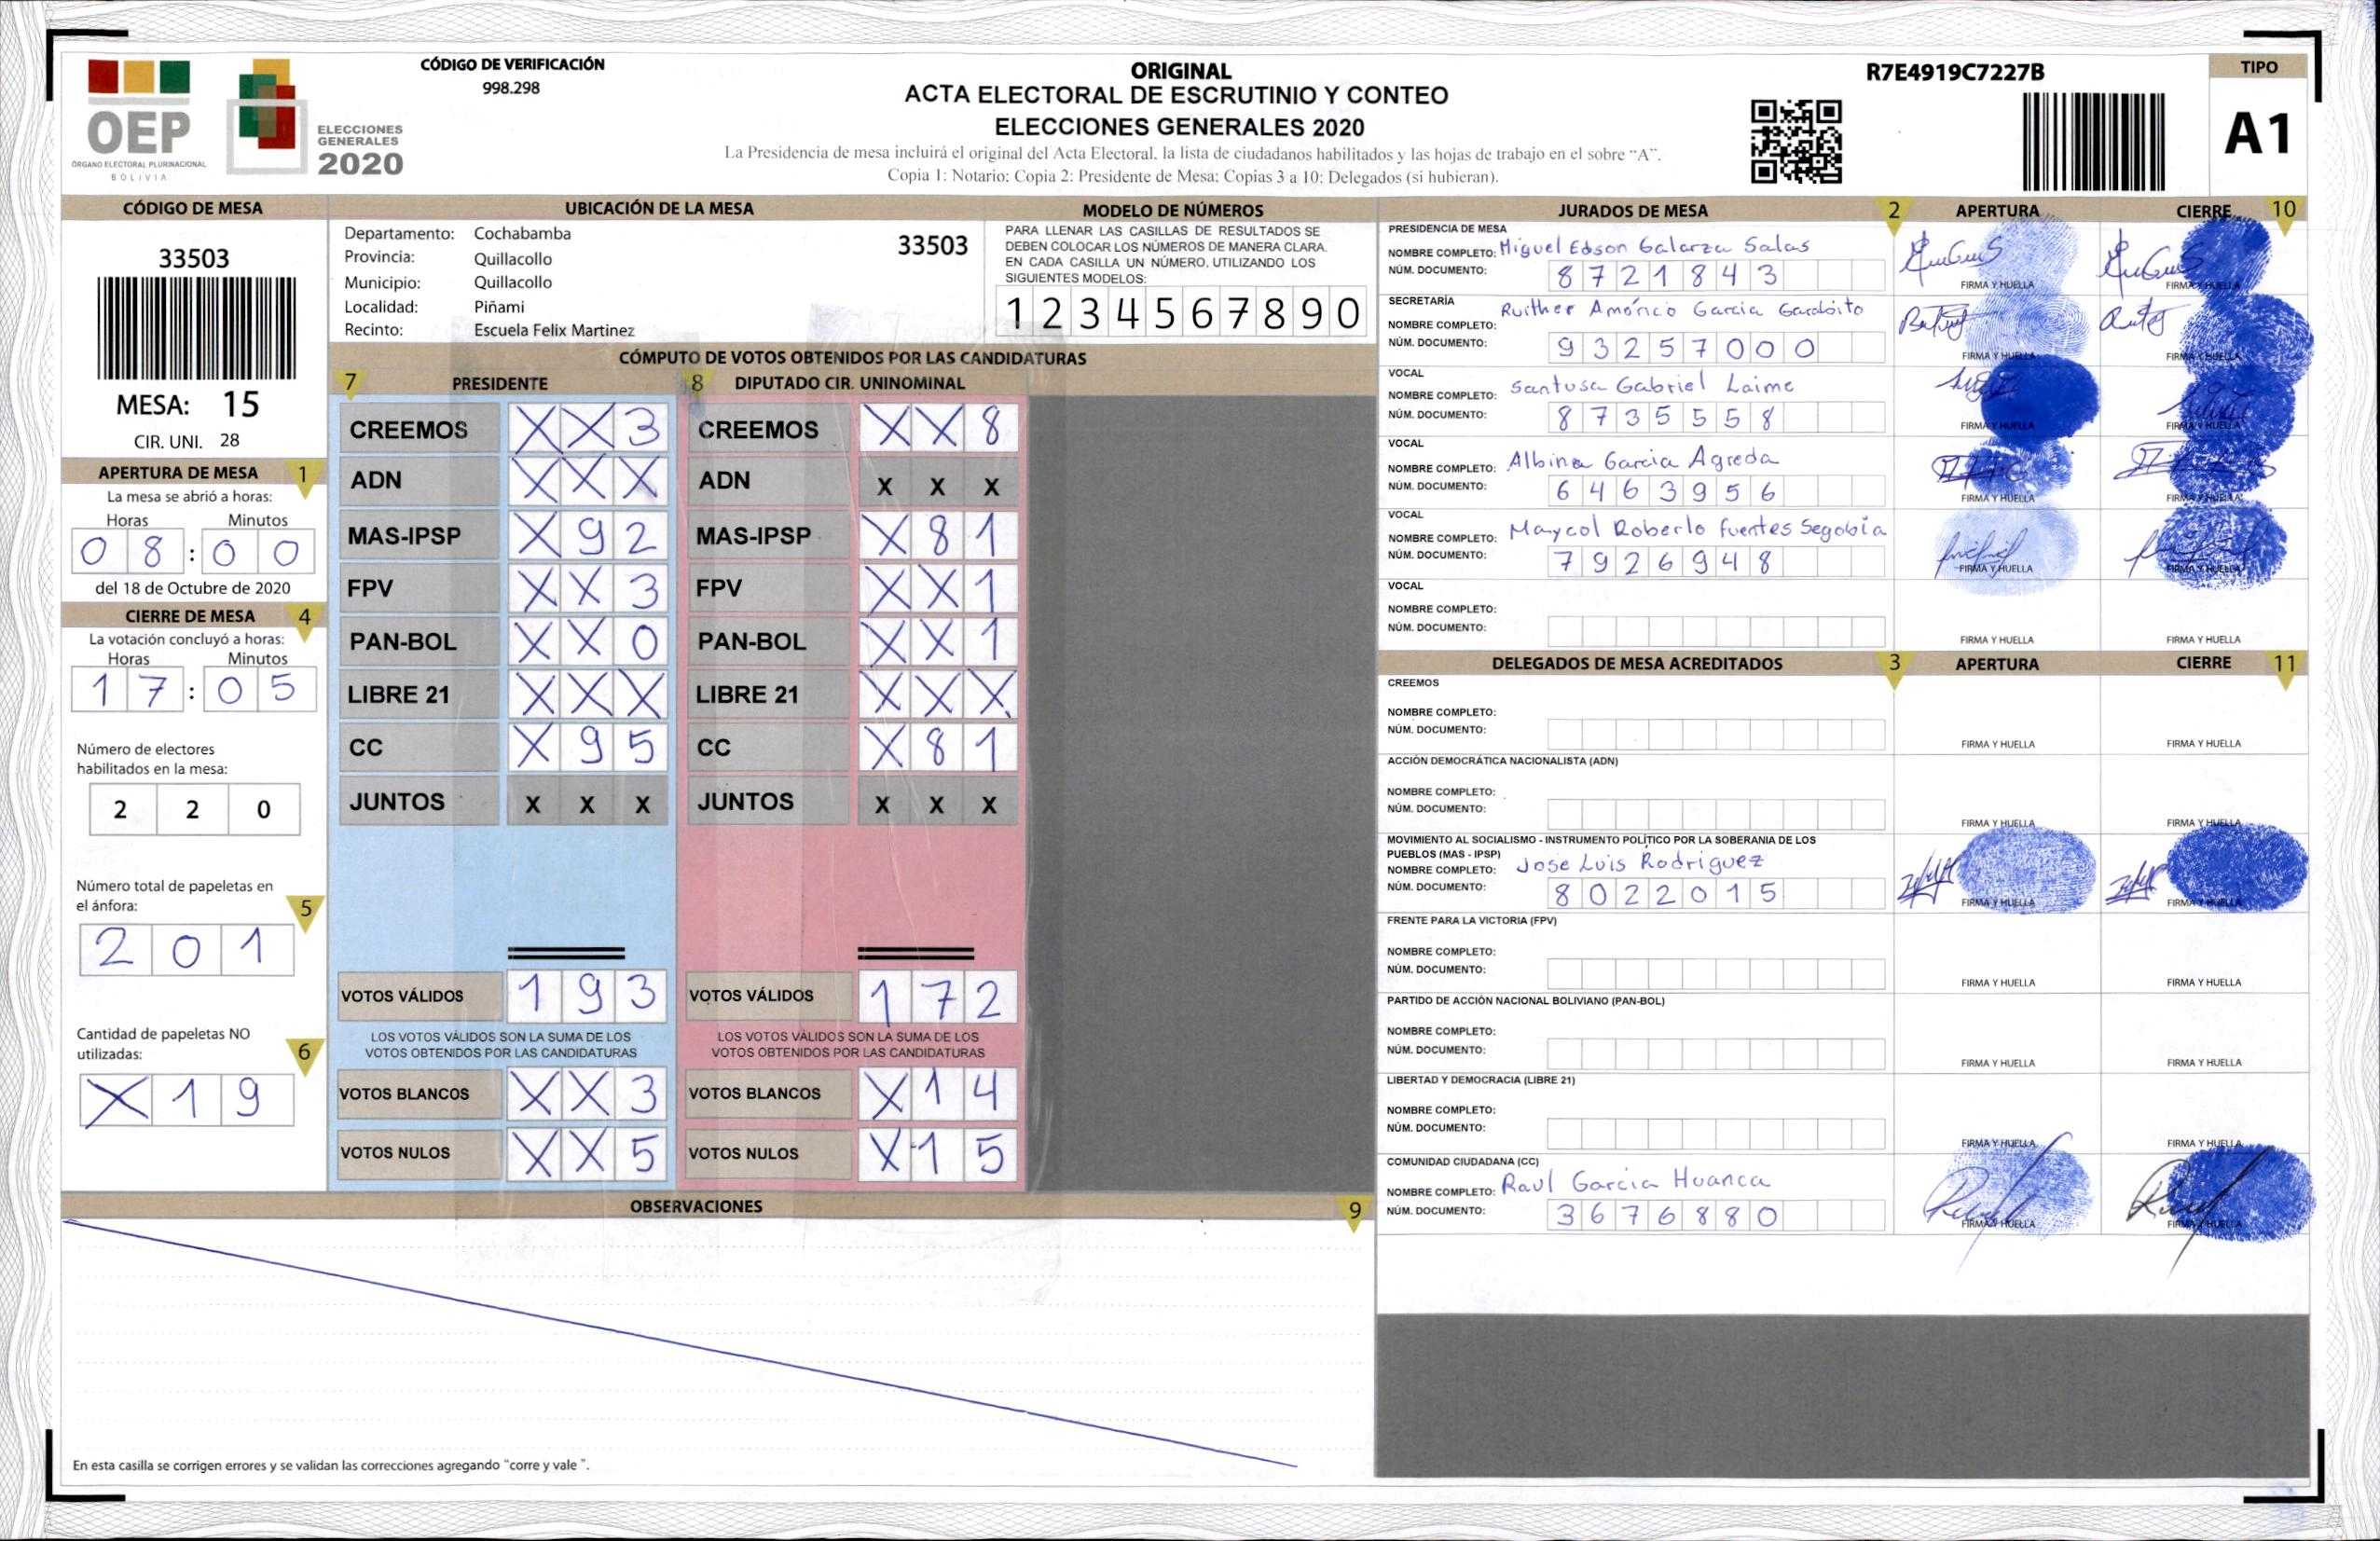 OEP
ÓRGANO ELECTORAL PLURINACIONAL
BOLIVIA
ELECCIONES
GENERALES
2020
CÓDIGO DE VERIFICACIÓN
998.298
ORIGINAL
ACTA ELECTORAL DE ESCRUTINIO Y CONTEO
ELECCIONES GENERALES 2020
La Presidencia de mesa incluirá el original del Acta Electoral, la lista de ciudadanos habilitados y las hojas de trabajo en el sobre “A”.
Copia 1: Notario; Copia 2: Presidente de Mesa; Copias 3 a 10: Delegados (si hubieran).
R7E4919C7227B
TIPO
A1
CÓDIGO DE MESA
33503
MESA: 15
CIR. UNI. 28
APERTURA DE MESA 1
La mesa se abrió a horas:
Horas Minutos
0 8 : 0 0
del 18 de Octubre de 2020
CIERRE DE MESA 4
La votación concluyó a horas:
Horas Minutos
1 7 : 0 5
Número de electores
habilitados en la mesa:
2 2 0
Número total de papeletas en
el ánfora: 5
2 0 1
Cantidad de papeletas NO
utilizadas: 6
X 1 9
UBICACIÓN DE LA MESA
Departamento: Cochabamba 33503
Provincia: Quillacollo
Municipio: Quillacollo
Localidad: Piñami
Recinto: Escuela Felix Martinez
MODELO DE NÚMEROS
PARA LLENAR LAS CASILLAS DE RESULTADOS SE
DEBEN COLOCAR LOS NÚMEROS DE MANERA CLARA.
EN CADA CASILLA UN NÚMERO, UTILIZANDO LOS
SIGUIENTES MODELOS:
1 2 3 4 5 6 7 8 9 0
CÓMPUTO DE VOTOS OBTENIDOS POR LAS CANDIDATURAS
7 PRESIDENTE 8 DIPUTADO CIR. UNINOMINAL
CREEMOS X X 3 CREEMOS X X 8
ADN X X X ADN X X X
MAS-IPSP X 9 2 MAS-IPSP X 8 1
FPV X X 3 FPV X X 1
PAN-BOL X X 0 PAN-BOL X X 1
LIBRE 21 X X X LIBRE 21 X X X
CC X 9 5 CC X 8 1
JUNTOS X X X JUNTOS X X X
VOTOS VÁLIDOS 1 9 3 VOTOS VÁLIDOS 1 7 2
LOS VOTOS VÁLIDOS SON LA SUMA DE LOS LOS VOTOS VÁLIDOS SON LA SUMA DE LOS
VOTOS OBTENIDOS POR LAS CANDIDATURAS VOTOS OBTENIDOS POR LAS CANDIDATURAS
VOTOS BLANCOS X X 3 VOTOS BLANCOS X 1 4
VOTOS NULOS X X 5 VOTOS NULOS X 1 5
OBSERVACIONES 9
En esta casilla se corrigen errores y se validan las correcciones agregando “corre y vale ”.
JURADOS DE MESA 2 APERTURA CIERRE 10
PRESIDENCIA DE MESA
NOMBRE COMPLETO: Miguel Edson Galarza Salas
NÚM. DOCUMENTO: 8 7 2 1 8 4 3 FIRMA Y HUELLA FIRMA Y HUELLA
SECRETARÍA
NOMBRE COMPLETO: Ruither Amórico Garcia
NÚM. DOCUMENTO: 9 3 2 5 7 0 0 0 FIRMA Y HUELLA FIRMA Y HUELLA
VOCAL
NOMBRE COMPLETO: Santusa Gabriel Laime
NÚM. DOCUMENTO: 8 7 3 5 5 5 8 FIRMA Y HUELLA FIRMA Y HUELLA
VOCAL
NOMBRE COMPLETO: Albina Garcia Agreda
NÚM. DOCUMENTO: 6 4 6 3 9 5 6 FIRMA Y HUELLA FIRMA Y HUELLA
VOCAL
NOMBRE COMPLETO: Maycol Roberto Fuentes Segobia
NÚM. DOCUMENTO: 7 9 2 6 9 4 8 FIRMA Y HUELLA FIRMA Y HUELLA
VOCAL
NOMBRE COMPLETO:
NÚM. DOCUMENTO: FIRMA Y HUELLA FIRMA Y HUELLA
DELEGADOS DE MESA ACREDITADOS 3 APERTURA CIERRE 11
CREEMOS
NOMBRE COMPLETO:
NÚM. DOCUMENTO: FIRMA Y HUELLA FIRMA Y HUELLA
ACCIÓN DEMOCRÁTICA NACIONALISTA (ADN)
NOMBRE COMPLETO:
NÚM. DOCUMENTO: FIRMA Y HUELLA FIRMA Y HUELLA
MOVIMIENTO AL SOCIALISMO - INSTRUMENTO POLÍTICO POR LA SOBERANIA DE LOS
PUEBLOS (MAS - IPSP)
NOMBRE COMPLETO: Jose Luis Rodriguez
NÚM. DOCUMENTO: 8 0 2 2 0 1 5 FIRMA Y HUELLA FIRMA Y HUELLA
FRENTE PARA LA VICTORIA (FPV)
NOMBRE COMPLETO:
NÚM. DOCUMENTO: FIRMA Y HUELLA FIRMA Y HUELLA
PARTIDO DE ACCIÓN NACIONAL BOLIVIANO (PAN-BOL)
NOMBRE COMPLETO:
NÚM. DOCUMENTO: FIRMA Y HUELLA FIRMA Y HUELLA
LIBERTAD Y DEMOCRACIA (LIBRE 21)
NOMBRE COMPLETO:
NÚM. DOCUMENTO: FIRMA Y HUELLA FIRMA Y HUELLA
COMUNIDAD CIUDADANA (CC)
NOMBRE COMPLETO: Raul Garcia Huanca
NÚM. DOCUMENTO: 3 6 7 6 8 8 0 FIRMA Y HUELLA FIRMA Y HUELLA